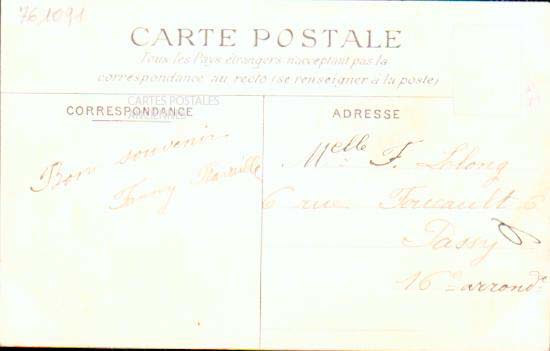 761091
CARTE POSTALE
Tous les Pays étrangers n'acceptant pas la
correspondance au recto (se renseigner à la poste)
CARTES POSTALES
CORRESPONDANCE
ADRESSE
Bon souvenir
Fanny
Melle F. Leblong
6 rue Foucault 6
Passy
16e arrondt